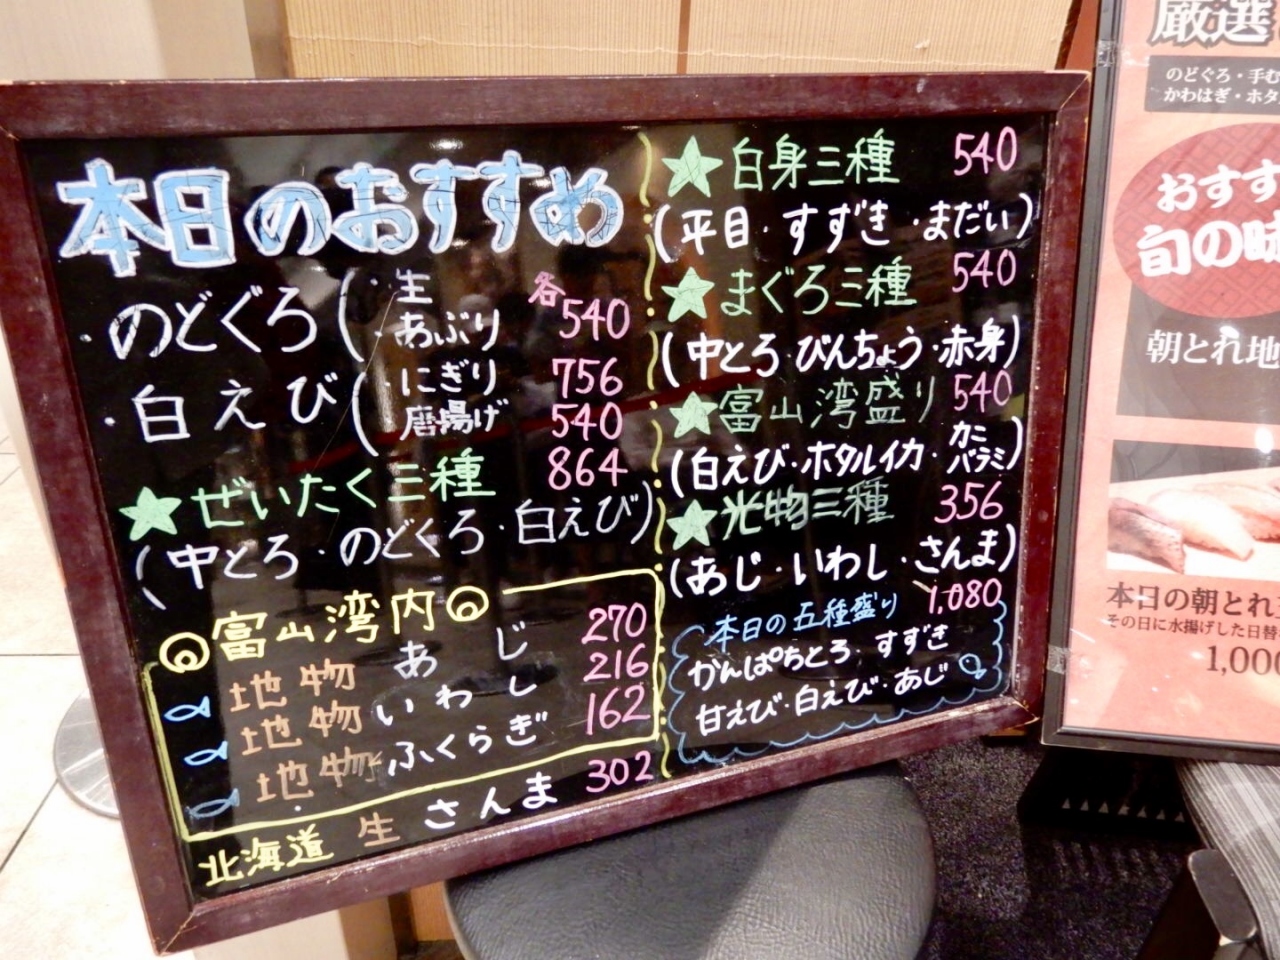 本日のおすすめ
・のどぐろ(・生 各540
・あぶり
・白えび(・にぎり 756
唐揚げ 540
★ぜいたく三種 864
(中とろ・のどぐろ・白えび)
◎富山湾内◎
地物 あじ 270
地物 いわし 216
地物 ふくらぎ 162
北海道 生 さんま 302
★白身三種 540
(平目・すずき・まだい)
★まぐろ三種 540
(中とろ・びんちょう・赤身)
★富山湾盛り 540
(白えび・ホタルイカ・カニバラミ)
★光物三種 356
(あじ・いわし・さんま)
本日の五種盛り 1,080
かんぱちとろ・すずき
甘えび・白えび・あじ
厳選
のどぐろ・手む
かわはぎ・ホタ
おすす
旬の味
朝とれ地
本日の朝とれ
その日に水揚げした日替
1,00